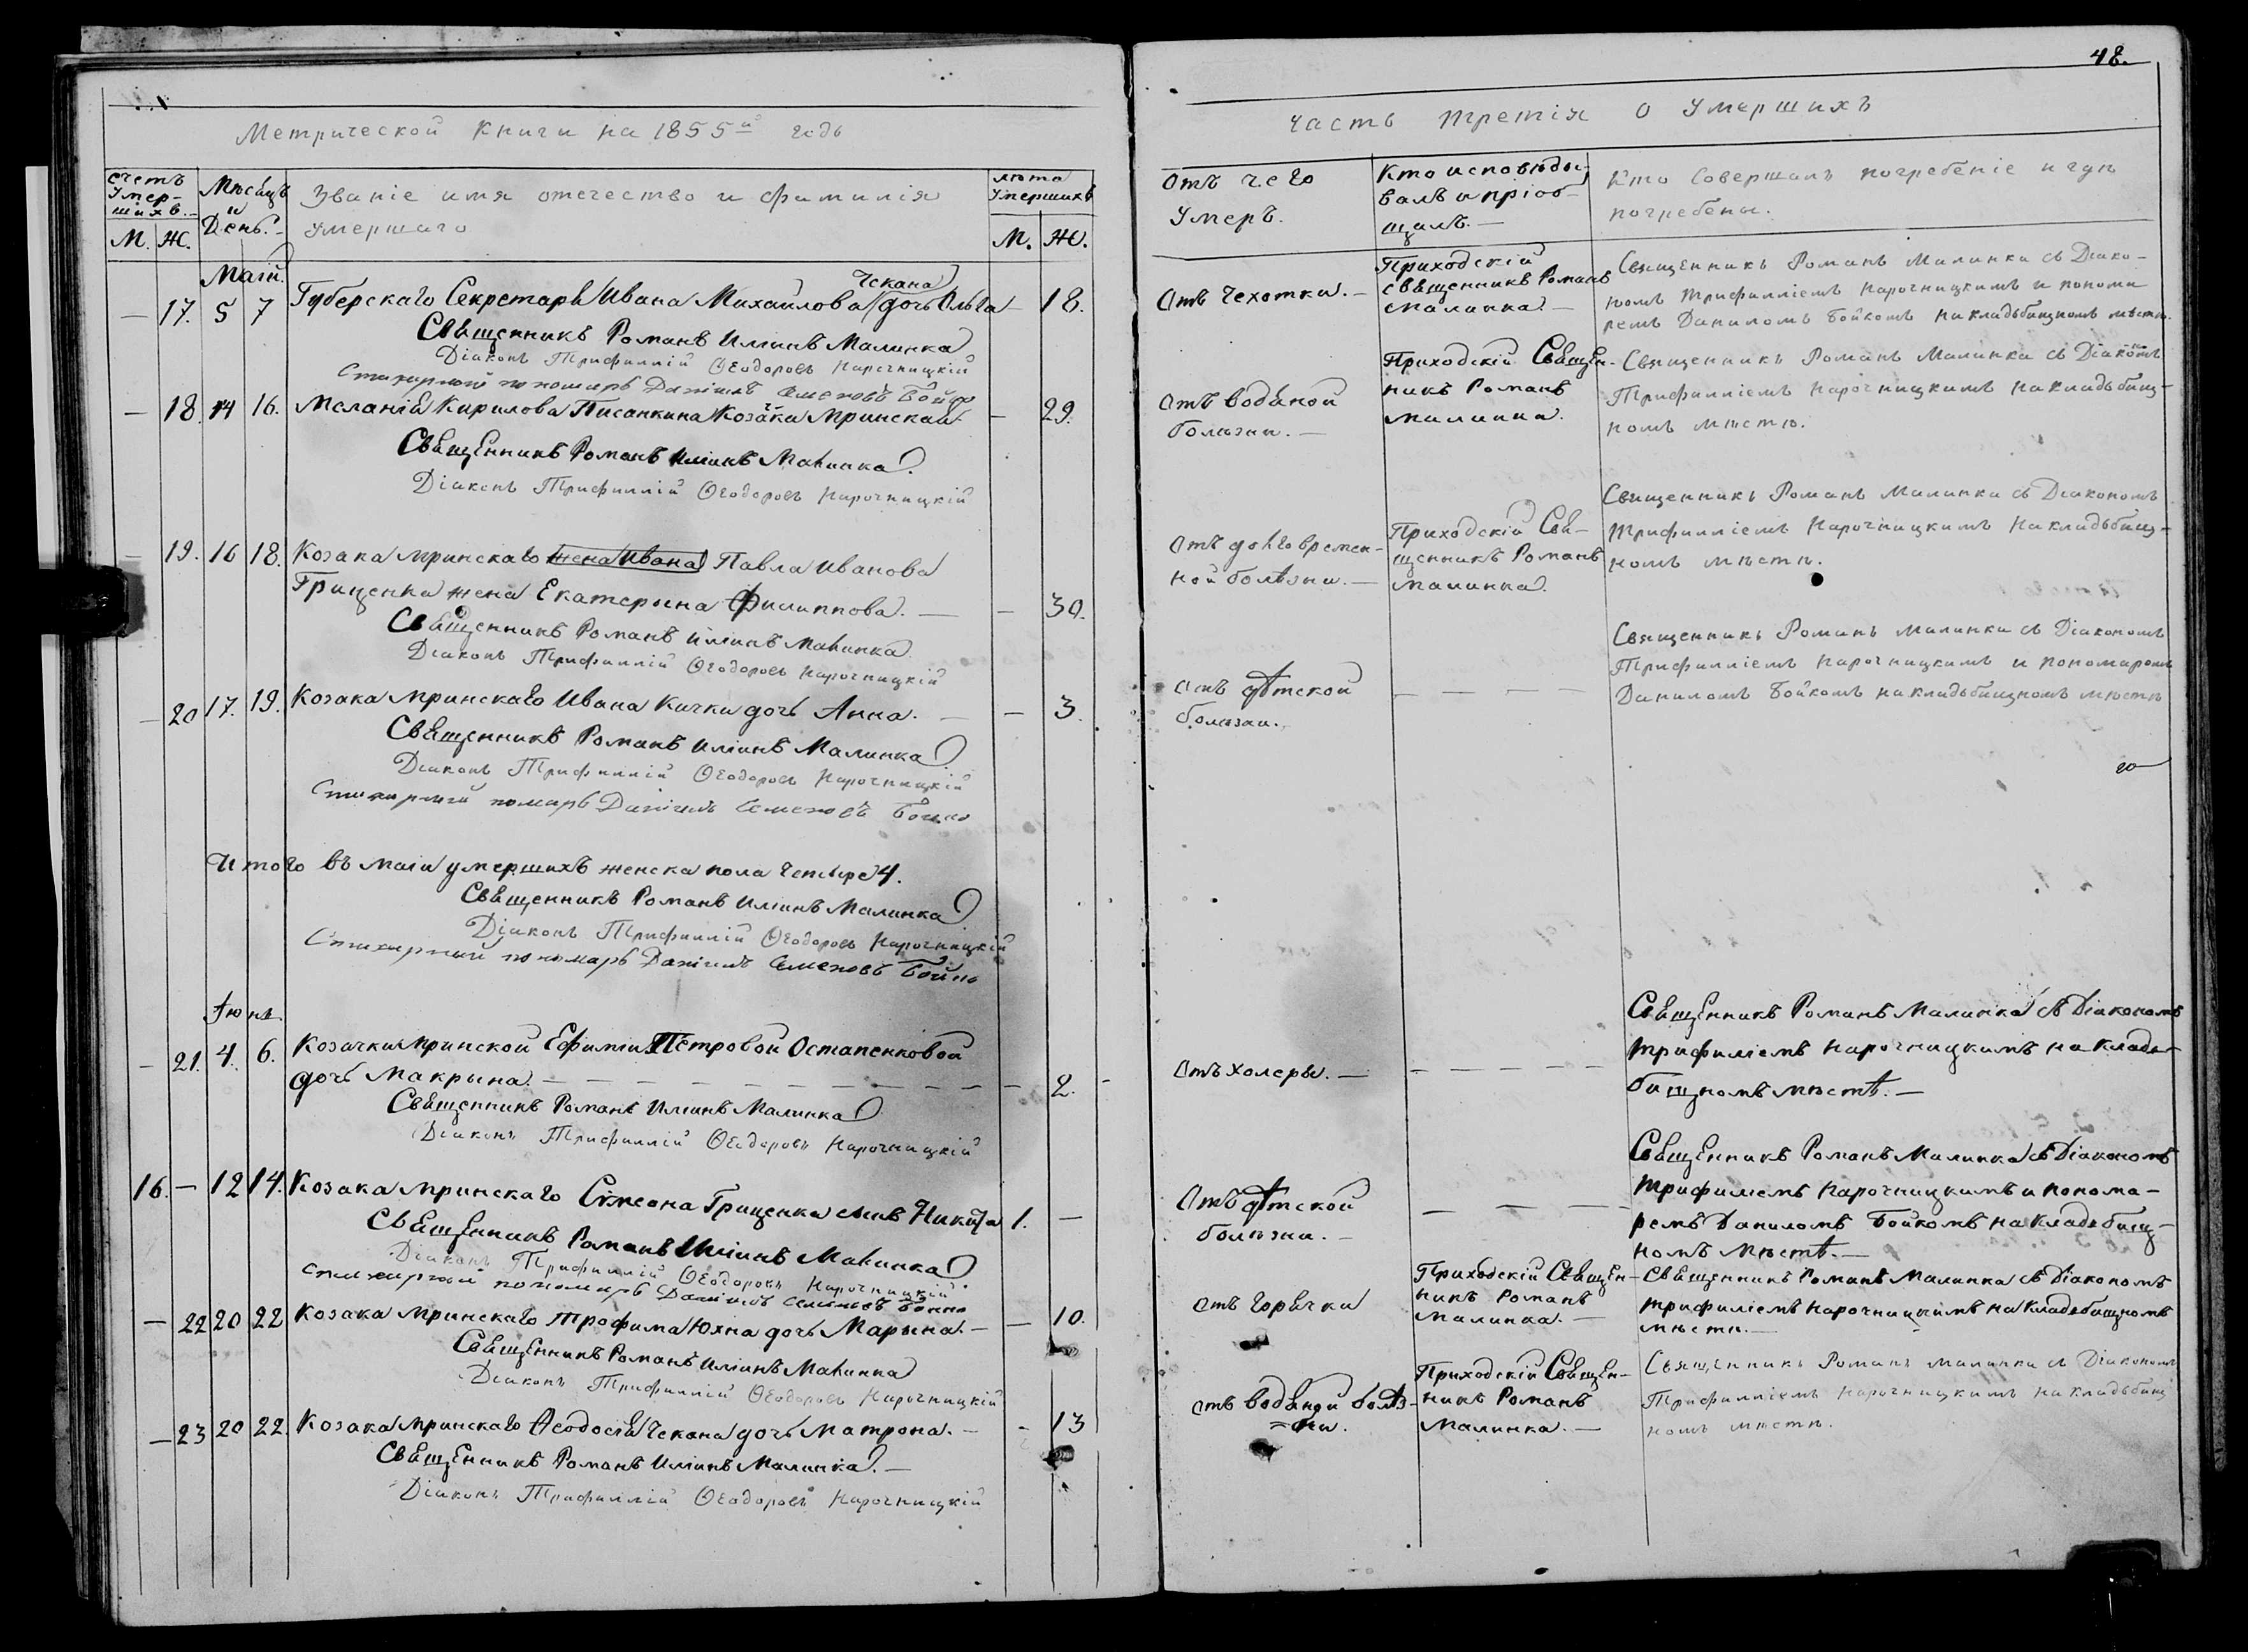 48.
Метрической Книги на 1855й годъ
Счетъ Умер-шихъ.
Мѣсяцъ и День.
Званіе имя отечество и фамилія
умершаго
лѣта Умершихъ
М. Ж.
М. Ж.
Маій.
Чекана
17. 5 7 Губерскаго Секретаря Ивана Михайлова дочь Ольга — 18.
Священникъ Романъ Иліинъ Малинка
Діаконъ Трифиллій Ѳеодоровъ Нарочницкій
Стихарный пономарь Даніилъ Семеновъ Бойко
— 18. 14 16. Меланія Кирилова Писанкина Козачка Мринская — 29.
Священникъ Романъ Иліинъ Малинка.
Діаконъ Трифиллій Ѳеодоровъ Нарочницкій
— 19. 16 18. Козака Мринскаго жена Ивана Павла Иванова
Гриценка жена Екатерына Филиппова. — — 30.
Священникъ Романъ Иліинъ Малинка
Діаконъ Трифиллій Ѳеодоровъ Нарочницкій
— 20 17. 19. Козака Мринскаго Ивана Кички дочь Анна. — — 3.
Священникъ Романъ Иліинъ Малинка
Діаконъ Трифиллій Ѳеодоровъ Нарочницкій
Стихарный номарь Даніилъ Семеновъ Бойко
Итого въ маіи умершихъ женска пола Четыре 4.
Священникъ Романъ Иліинъ Малинка
Діаконъ Трифиллій Ѳеодоровъ Нарочницкій
Стихарный пономарь Даніилъ Семеновъ Бойко
Іюнь
— 21. 4. 6. Козачки Мринской Ефиміи Петровой Остапенковой
дочь Макрына. — 2.
Священникъ Романъ Иліинъ Малинка
Діаконъ Трифиллій Ѳеодоровъ Нарочницкій
16. — 12 14. Козака Мринскаго Сімеона Гриценка сынъ Никита 1. —
Священникъ Романъ Иліинъ Малинка
Діаконъ Трифиллій Ѳеодоровъ Нарочницкій
Стихарный пономарь Даніилъ Семеновъ Бойко
— 22 20 22 Козака Мринскаго Трофима Юхна дочь Марына. — — 10.
Священникъ Романъ Иліинъ Малинка
Діаконъ Трифиллій Ѳеодоровъ Нарочницкій
— 23 20 22. Козака Мринскаго Ѳеодосія Чекана дочь Матрона. — - 13
Священникъ Романъ Иліинъ Малинка. —
Діаконъ Трифиллій Ѳеодоровъ Нарочницкій
Часть Третія О Умершихъ
Отъ чего
Умеръ.
Кто исповѣды-
валъ и пріоб-
щалъ. —
Кто Совершалъ погребеніе и гдѣ
погребены.
Отъ Чехотки. —
Приходскій
священникъ Романъ
Малинка. —
Священникъ Романъ Малинка съ Діако-
номъ Трифилліемъ Нарочницкимъ и понома
ремъ Даниломъ Бойкомъ на кладьбищномъ мѣстѣ.
Отъ водяной
болѣзни. —
Приходскій Священ-
никъ Романъ
Малинка.
Священникъ Романъ Малинка съ Діакономъ
Трифилліемъ Нарочницкимъ на кладьбищ-
номъ мѣстѣ.
Отъ долговремен-
ной болѣзни. —
Приходскій Свя-
щенникъ Романъ
Малинка.
Священникъ Романъ Малинка съ Діакономъ
Трифилліемъ Нарочницкимъ на кладьбищ-
номъ мѣстѣ.
Отъ дѣтской
болѣзни.
— — — —
Священникъ Романъ Малинка съ Діакономъ
Трифилліемъ Нарочницкимъ и пономаромъ
Даниломъ Бойкомъ на кладьбищномъ мѣстѣ
Отъ холеры. —
— — — — —
Священникъ Романъ Малинка съ Діакономъ
Трифиліемъ Нарочницкимъ на кладь-
бищномъ мѣстѣ. —
Отъ дѣтской
болѣзни. —
— — — —
Священникъ Романъ Малинка съ Діакономъ
Трифиліемъ Нарочницкимъ и понома-
ремъ Даниломъ Бойкомъ на кладьбищ-
номъ мѣстѣ. —
Отъ Горячки
Приходскій Священ-
никъ Романъ
Малинка. —
Священникъ Романъ Малинка съ Діакономъ
Трифиліемъ Нарочницкимъ на кладьбищномъ
мѣстѣ. —
Отъ водяной болѣз-
=ни.
Приходскій Священ-
никъ Романъ
Малинка. —
Священникъ Романъ Малинка съ Діакономъ
Трифилліемъ Нарочницкимъ на кладьбищ
номъ мѣстѣ.